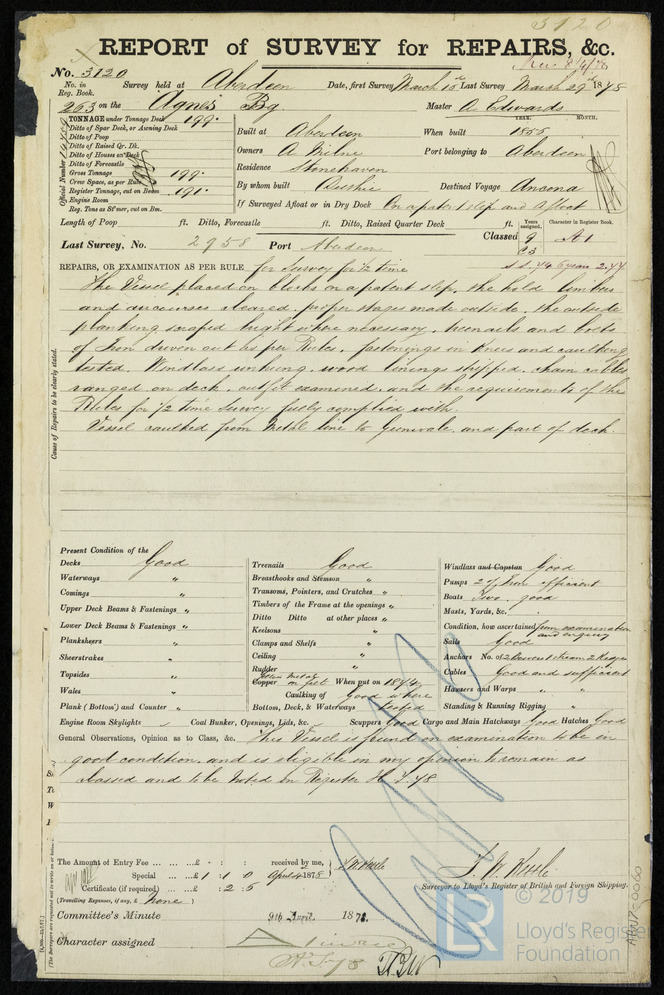 3120
REPORT of SURVEY for REPAIRS, &c.
Rec. 8/4/78
No. 3120 Survey held at Aberdeen Date, first Survey March 15th Last Survey March 29th 1878
No. in Reg. Book.
263 on the "Agnes" Bg. Master A. Edwards
TONNAGE under Tonnage Deck 199.
Ditto of Spar Deck, or Awning Deck
Ditto of Poop
Ditto of Raised Qr. Dk.
Ditto of Houses on Deck
Ditto of Forecastle
Gross Tonnage 199.
Crew Space, as per Rule
Register Tonnage, cut on Beam 191.
Engine Room
Reg. Tons as St'mer, cut on Bm.
Official Number
YEAR. MONTH.
Built at Aberdeen When built 1855
Owners A. Milne Port belonging to Aberdeen
Residence Stonehaven
By whom built Duthie Destined Voyage Ancona
If Surveyed Afloat or in Dry Dock On a patent slip and Afloat
Length of Poop ft. Ditto, Forecastle ft. Ditto, Raised Quarter Deck ft.
Years assigned. Character in Register Book.
Last Survey, No. 2958 Port Aberdeen Classed 9 A1
REPAIRS, OR EXAMINATION AS PER RULE for Survey for 1/2 time
The Vessel placed on blocks on a patent slip, the hold limbers
and aircourses cleared, proper stages made outside, the outside
planking scraped bright where necessary, treenails and bolts
of Iron driven out as per Rules, fastenings in knees and caulking
tested. Windlass unhung, wood linings stripped, chain cables
ranged on deck, outfit examined, and the requirements of the
Rules for 1/2 time Survey fully complied with.
Vessel caulked from Metal line to gunwale, and part of deck.
Causes of Repairs to be clearly stated.
Present Condition of the
Decks Good
Waterways "
Comings "
Upper Deck Beams & Fastenings "
Lower Deck Beams & Fastenings "
Planksheers "
Sheerstrakes "
Topsides "
Wales "
Plank (Bottom) and Counter "
Treenails Good
Breasthooks and Stemson "
Transoms, Pointers, and Crutches "
Timbers of the Frame at the openings "
Ditto Ditto at other places "
Keelsons "
Clamps and Shelfs "
Ceiling "
Rudder "
Yellow Metal
Copper on felt When put on 1874
Caulking of Good where
Bottom, Deck, & Waterways tested
Windlass and Capstan Good
Pumps 2 of Iron efficient
Boats Two. good
Masts, Yards, &c. "
Condition, how ascertained from examination
and enquiry
Sails Good
Anchors No. of 2 Bower 1 Stream 2 Kedges
Cables Good and sufficient
Hawsers and Warps " "
Standing & Running Rigging " "
Engine Room Skylights Coal Bunker, Openings, Lids, &c. Scuppers Good Cargo and Main Hatchways Good Hatches Good
General Observations, Opinion as to Class, &c. This Vessel is found on examination to be in
good condition, and is eligible in my opinion to remain as
classed and to be noted in Register H.T. 78
The Amount of Entry Fee ... ... ... £ : : received by me,
Special ... ... £ 1 : 1 : 0 April 4 1878
Certificate (if required) ... : 2 : 5
(Travelling Expenses, if any, £ None)
Surveyor to Lloyd's Register of British and Foreign Shipping.
Committee's Minute 9th April 1878
Character assigned
H.T. 78
© 2019
LR
Lloyd's Register
Foundation